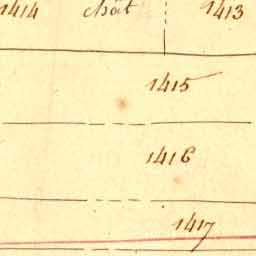 1414 chât 1413
1415
1416
1417